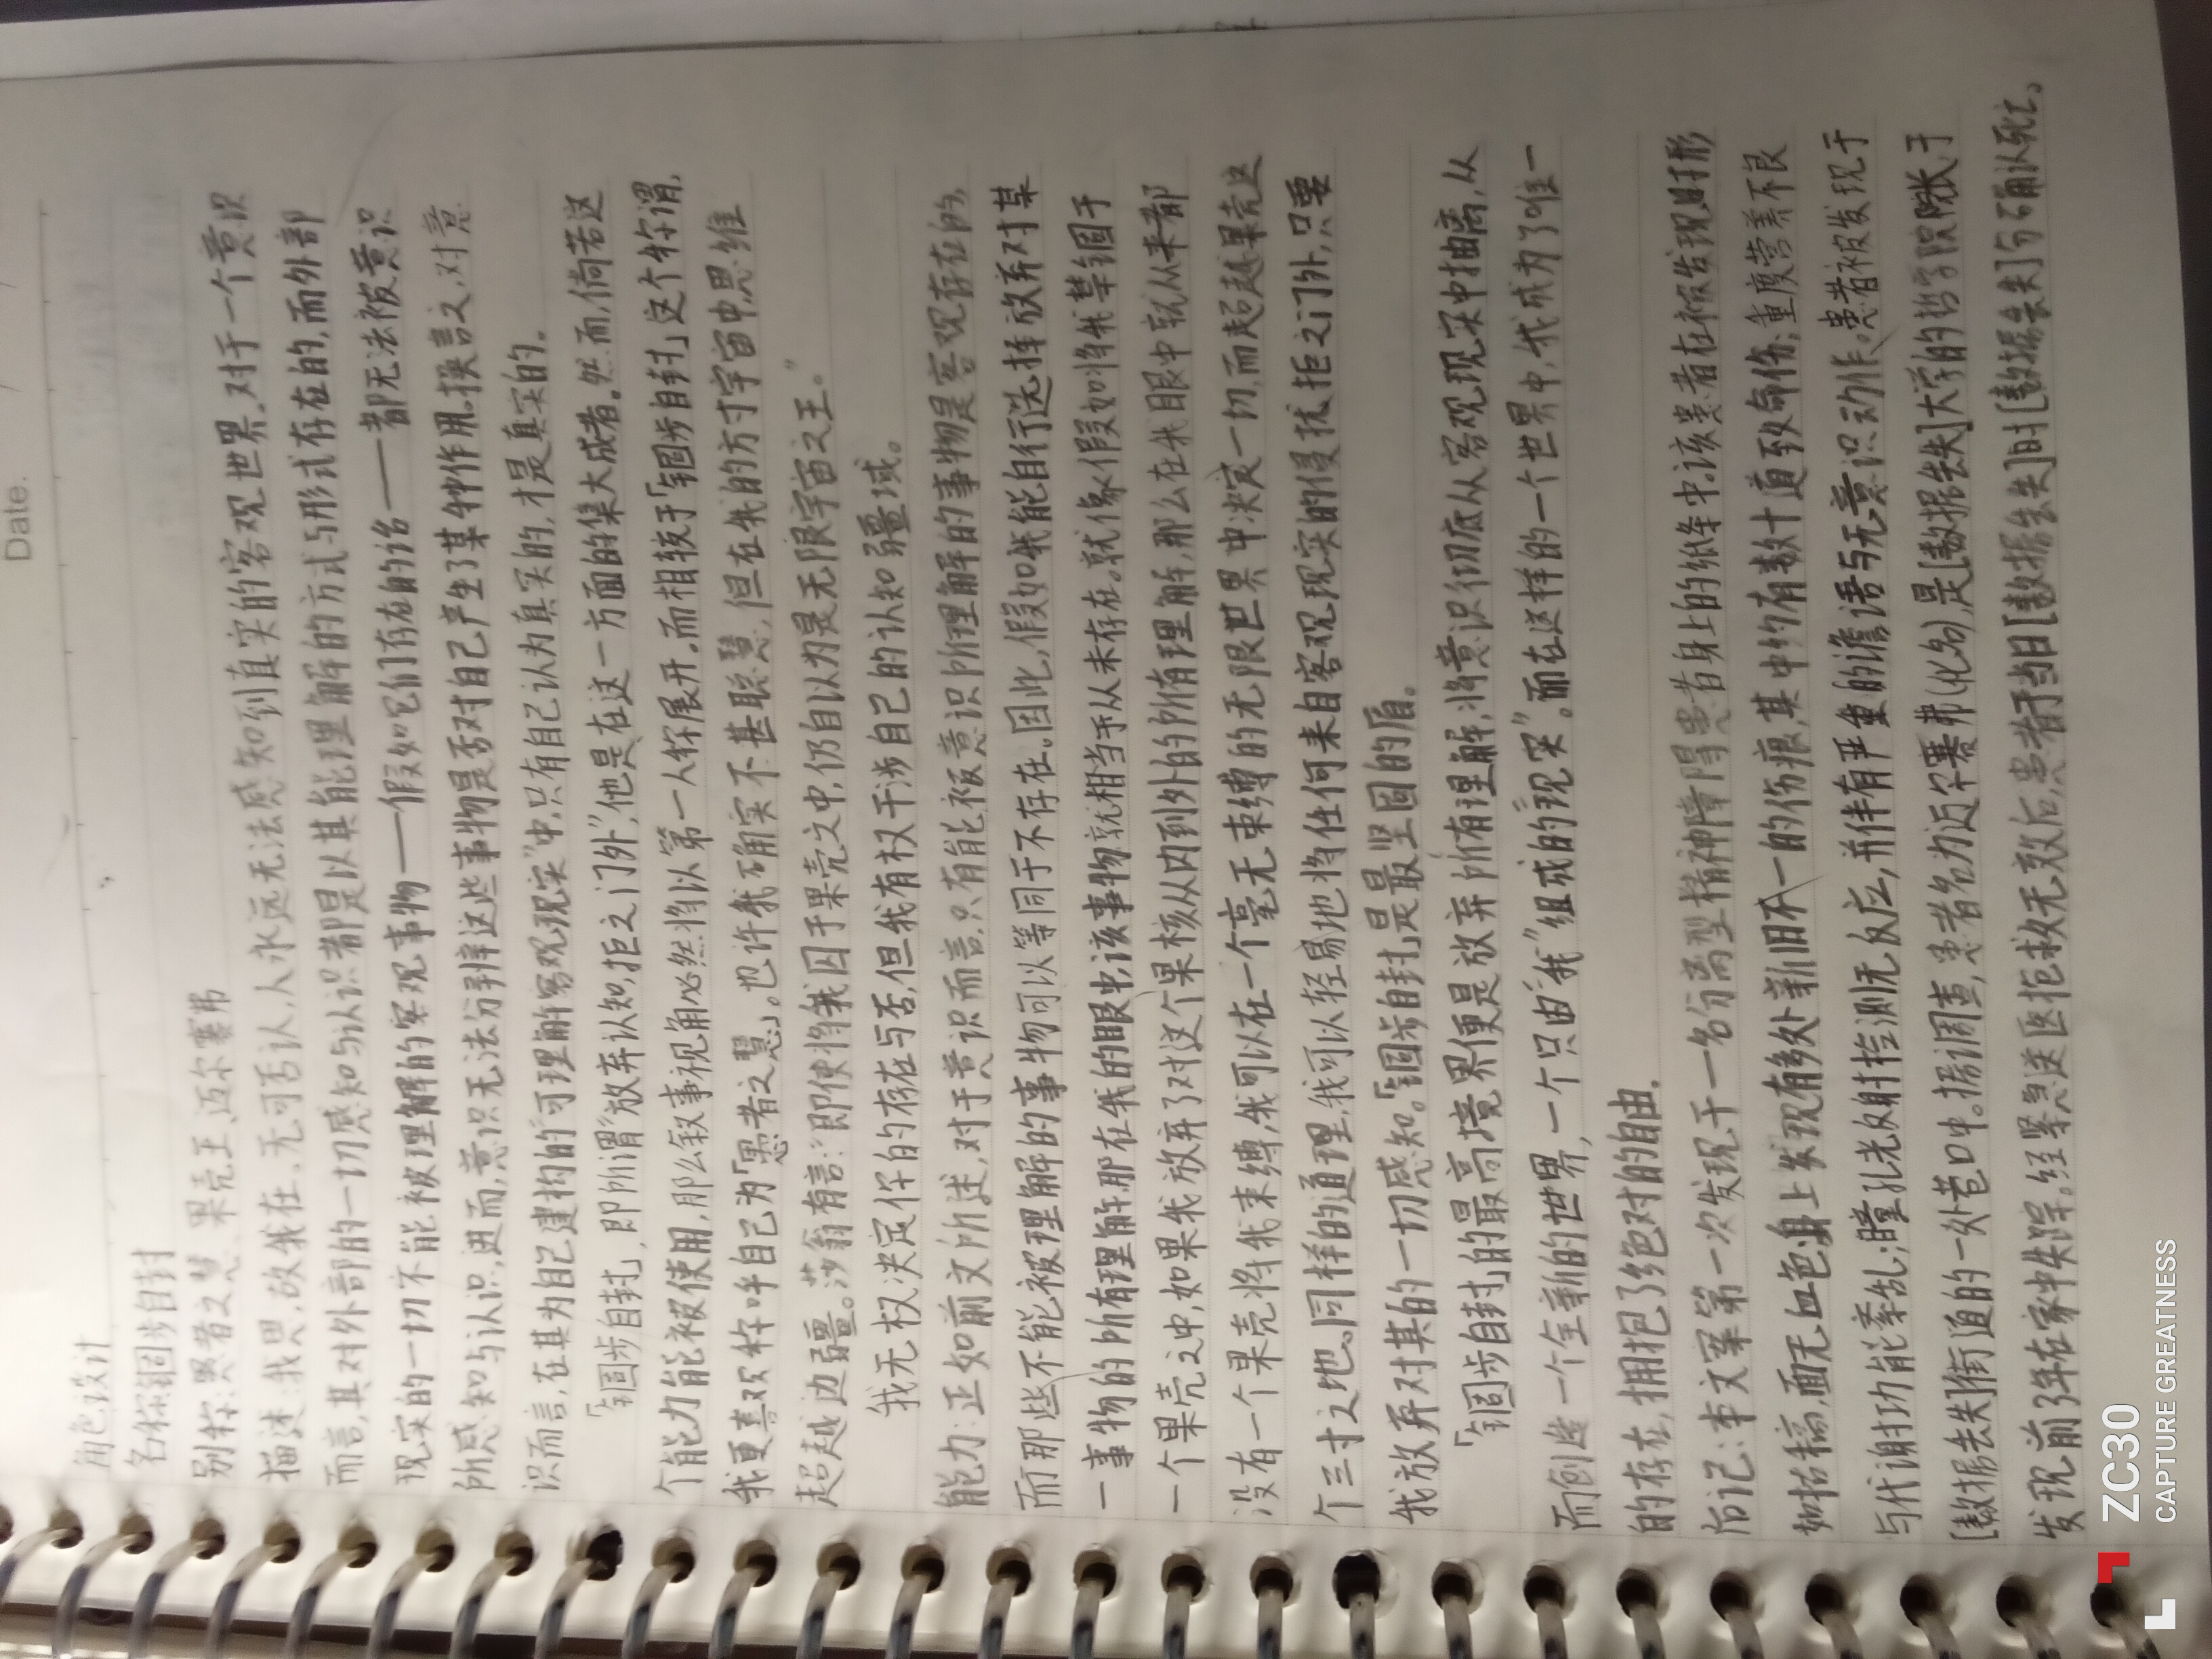 Date.
角色设计
名称:锢步自封
别称:愚者之慧、果壳王、迈尔赛弗
描述:我思,故我在。无可否认,人永远无法感知到真实的客观世界。对于一个意识
而言,其对外部的一切感知与认识者都是以其能理解的方式与形式存在的,而外部
现实的一切不能被理解的客观事物——假如它们存在的话——都无法被意识
所感知与认识,进而,意识无法分辨这些事物是否对自己产生了某种作用。换言之,对意
识而言,在其为自己建构的“可理解客观现实”中,只有自己认为真实的,才是真实的。
「锢步自封」,即所谓“放弃认知,拒之门外”,他是在这一方面的集大成者。然而,倘若这
个能力能被使用,那么叙事视角必然将以第一人称展开。而相较于「锢步自封」这个称谓,
我更喜欢称呼自己为「愚者之慧」。也许我确实不甚聪慧,但在我的方寸宇宙中,思维
超越边疆。莎翁有言:“即使将我囚于果壳之中,仍自以为是无限宇宙之王。”
我无权决定你的存在与否,但我有权干涉自己的认知疆域。
能力:正如前文所述,对于意识而言,只有能被意识所理解的事物是客观存在的,
而那些不能被理解的事物可以等同于不存在。因此,假如我能自行选择放弃对某
一事物的所有理解,那在我的眼中,该事物就相当于从未存在。就像假如将我禁锢于
一个果壳之中,如果我放弃了对这个果核从内到外的所有理解,那么在我眼中就从来都
没有一个果壳将我束缚,我可以在一个毫无束缚的无限世界中决定一切,而超越果壳这
个三寸之地。同样的道理,我可以轻易地将任何来自客观现实的侵扰拒之门外,只要
我放弃对其的一切感知。「锢步自封」是最坚固的盾。
「锢步自封」的最高境界便是放弃所有理解,将意识彻底从客观现实中抽离,从
而创造一个全新的世界,一个只由“我”组成的“现实”。而在这样的一个世界中,我成为了唯一
的存在,拥抱了绝对的自由。
后记:本文案第一次发现于一名分离型精神障碍患者身上的纸条中。该患者在被发现时形
如枯槁,面无血色,身上发现有多处新旧不一的伤痕,其中约有数十道致命伤;重度营养不良
与代谢功能紊乱;瞳孔光反射检测无反应,并伴有严重的谵语与无意识动作。患者被发现于
[数据丢失]街道的一处巷口中。据调查,患者名为迈尔赛弗(化名),是[数据丢失]大学的哲学院院长,于
发现前3年在家中失踪。经紧急送医抢救无效后,患者于当日[数据丢失]时[数据丢失]分确认死亡。
ZC30
CAPTURE GREATNESS